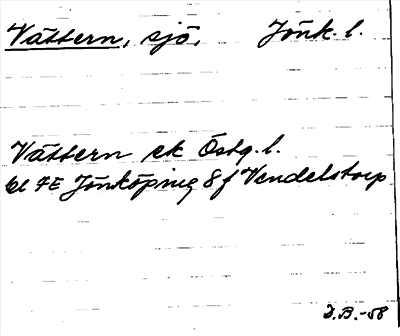 Vättern, sjö, Jönk. l.
Vättern ek Östg. l.
bl 7E Jönköping 8f Vendelstorp
D.B.-58